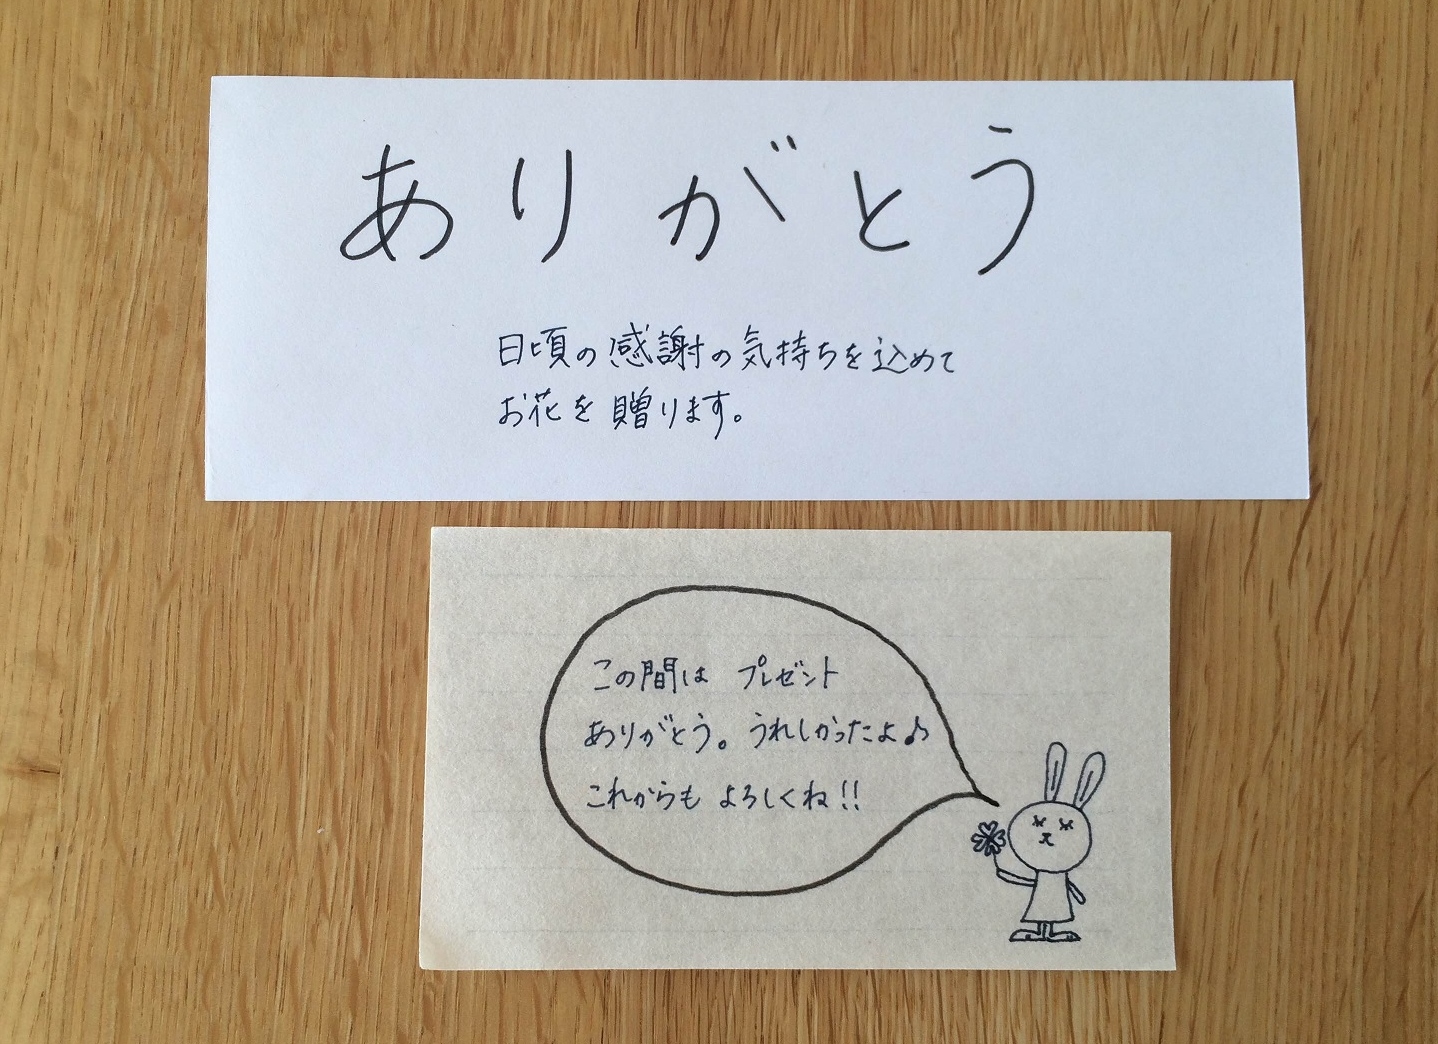 ありがとう
日頃の感謝の気持ちを込めて
お花を贈ります。
この間は プレゼント
ありがとう。うれしかったよ♪
これからも よろしくね!!